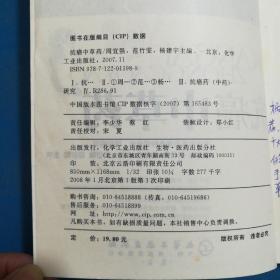 图书在版编目(CIP)数据
抗癌中草药/周宜强,范竹雯,杨娅宇主编.—北京:化学
工业出版社,2007.11
ISBN 978-7-122-01398-8
Ⅰ.抗… Ⅱ.①周…②范…③杨… Ⅲ.抗癌药(中药)-
研究 Ⅳ.R286.91
中国版本图书馆CIP数据核字(2007)第165483号
责任编辑:李少华 蔡红 装帧设计:郑小红
责任校对:宋夏
出版发行:化学工业出版社 生物·医药出版分社
(北京市东城区青年湖南街13号 邮政编码100011)
印装:北京云浩印刷有限责任公司
850mm×1168mm 1/32 印张10¾ 字数277千字
2008年1月北京第1版第1次印刷
购书咨询:010-64518888(传真:010-64519686)
售后服务:010-64518899
网址:http://www.cip.com.cn
凡购买本书,如有缺损质量问题,本社销售中心负责调换。
定价:19.80元 版权所有 违者必究